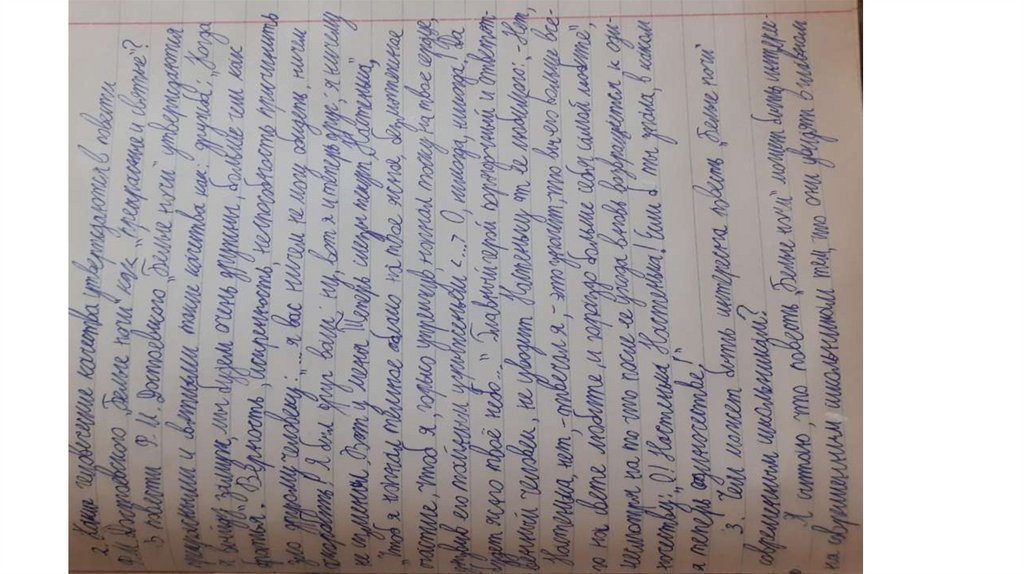 2. Какие человеческие качества утверждаются в повести
Ф.М. Достоевского „Белые ночи" как „прекрасные и светлые"?
В повести Ф.М. Достоевского „Белые ночи" утверждаются
прекрасными и светлыми такие качества как: дружба: „Когда
я выйду замуж, мы будем очень дружны, больше чем как
братья". Верность, искренность, неспособность причинить
зло другому человеку: „...я вас ничем не могу обидеть, ничем
Я был друг ваш; ну, вот я и теперь друг; я ничему
не изменял. Вот у меня теперь слезы текут, Настенька",
„Чтоб я нагнал темное облако на твое ясное, безмятежное
счастие, чтоб я, горько упрекнув, нагнал тоску на твое сердце,
уязвив его тайными угрызеньями <...> О, никогда, никогда! Да
будет ясно твоё небо..." Главный герой порядочный и ответст-
венный человек, не уводит Настеньку от её любимого: „-Нет,
Настенька, нет, - отвечал я, - это значит, что вы его больше все-
го на свете любите, и гораздо больше себя самой любите",
несмотря на то что после её ухода вновь возвращается к оди-
ночеству: „О! Настенька! Настенька! Если б ты знала, в каком
я теперь одиночестве!"
3. Чем может быть интересна повесть „Белые ночи"
современным школьникам?
Я считаю, что повесть „Белые ночи" может быть интерес-
на современным школьникам тем, что они увидят в главном